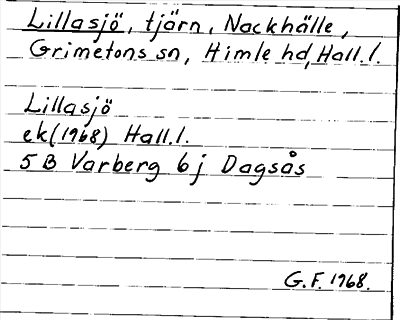 Lillasjö, tjärn, Nackhälle,
Grimetons sn, Himle hd, Hall.l.
Lillasjö
ek(1968) Hall.l.
5 B Varberg 6 j Dagsås
G.F. 1968.